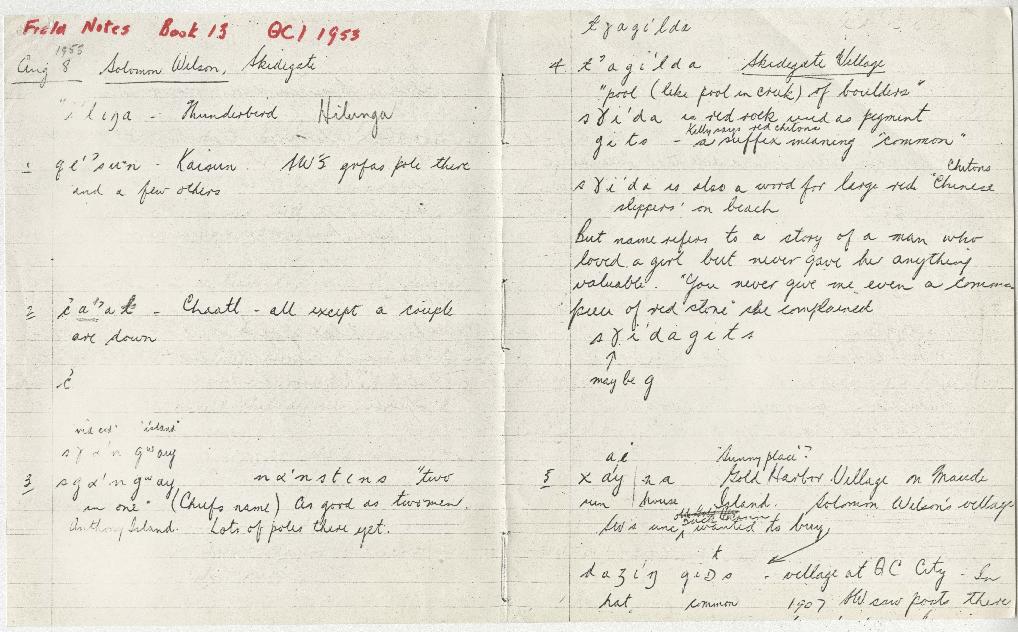 Field Notes Book 13 QCI 1953
1953
Aug 8 Solomon Wilson, Skidegate
- Thunderbird Hilunga
1 - Kaisun. SW's grfas pole there
and a few others
2 - Chaatl - all except a couple
are down
c̓
red cod 'island'
sɣα'n gʷay
3 sgα'ngʷay nα'nstɩns "two
in one" (Chief's name) As good as two men.
Anthony Island. Lots of poles there yet.
tɣagilda
4 t'agilda Skidegate Village
"pool (like pool in creek) of boulders"
sɣi'da is red rock used as pigment
Kelly says red chitons
gits - a suffix meaning "common"
Chitons
sɣi'da is also a word for large red "Chinese
slippers' on beach
But name refers to a story of a man who
loved a girl but never gave her anything
valuable. "You never give me even a common
piece of red stone" she complained
sɣi'dagits
↑
may be g
"Sunny place"?
5 xa'y | na Gold Harbor Village on Maude
sun | house Island. Solomon Wilson's village
SW's unc wanted to buy
- village at QC City - In
hat common 1907 SW saw posts there